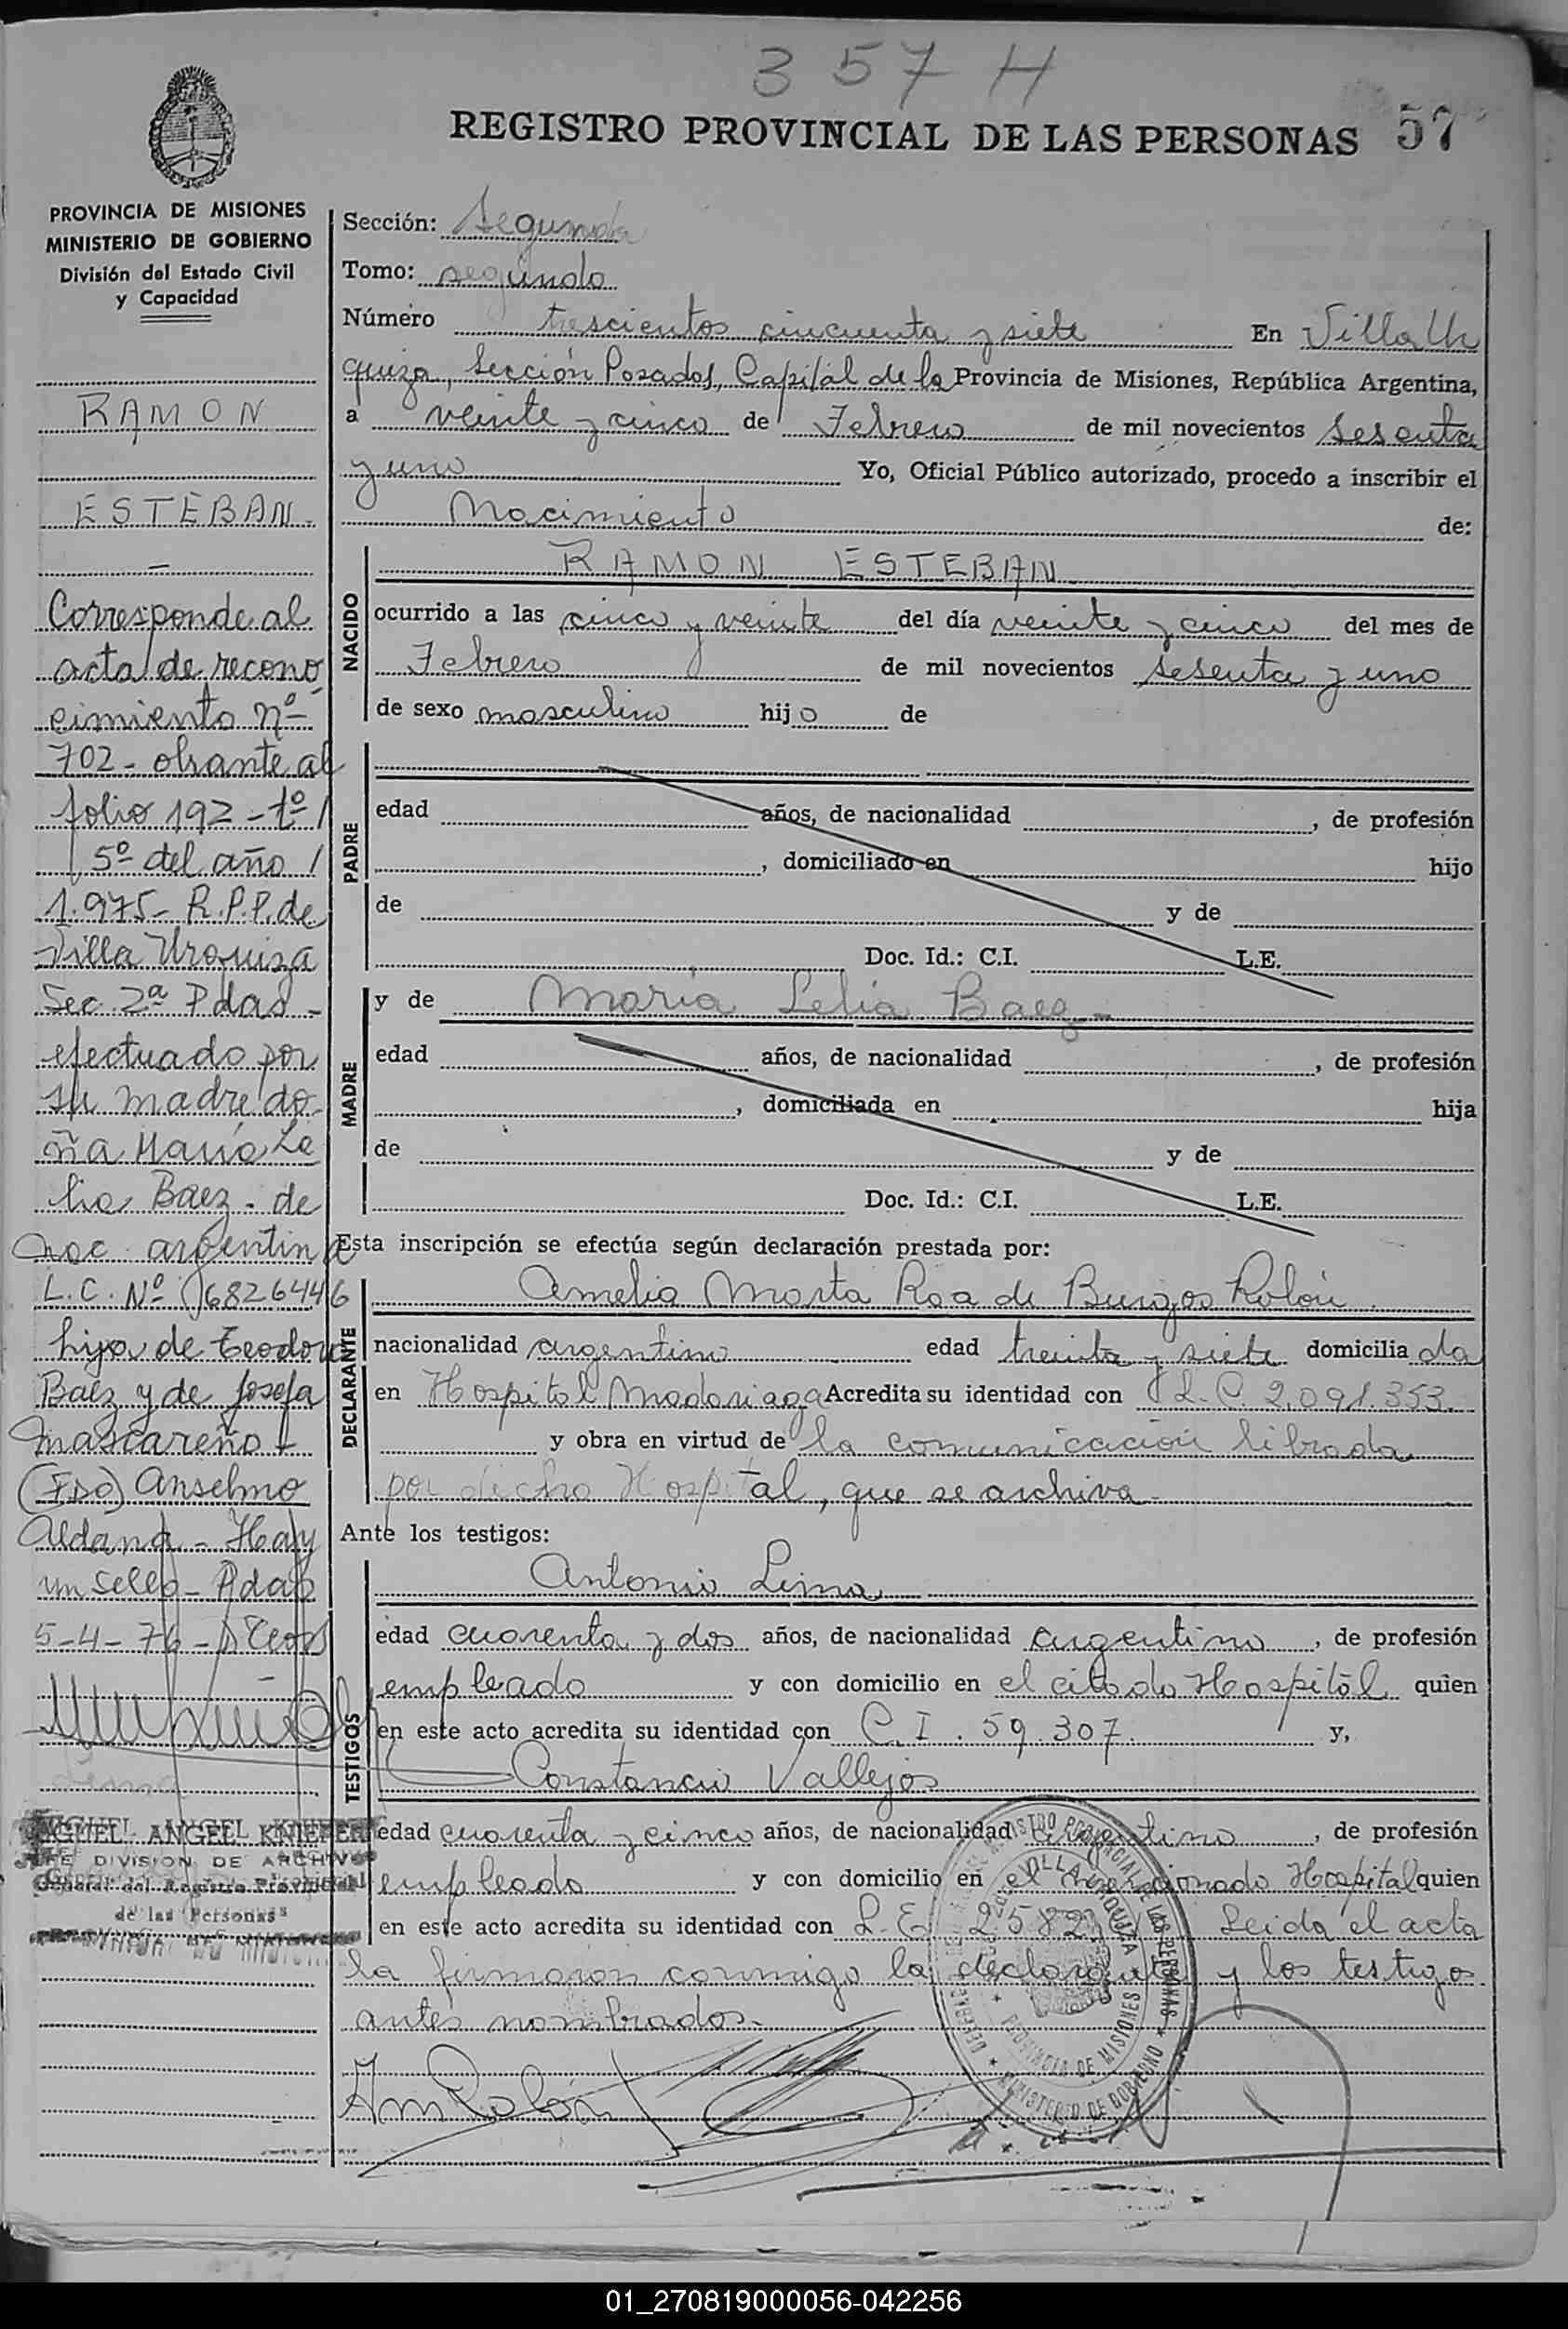 357 H
REGISTRO PROVINCIAL DE LAS PERSONAS 57
PROVINCIA DE MISIONES
MINISTERIO DE GOBIERNO
División del Estado Civil
y Capacidad
RAMON
ESTEBAN.
Corresponde al
acta de recono
cimiento nº
702 - obrante al
folio 192 - tº
5º del año
1.975 - R.P.P. de
Villa Urquiza
Sec 2ª Pdas -
efectuado por
su madre do-
ña María Le
lia Baez - de
nac. argentina
L.C. Nº 6826446
hija de Teodoro
Baez y de Josefa
Mascareño -
(FDO) Anselmo
Aldana - Hay
un sello - Pdas
5-4-76 -
MIGUEL ANGEL KNIEPER
JEFE DIVISION DE ARCHIVO
General del Registro Provincial
de las Personas
Sección: Segunda
Tomo: segundo
Número trescientos cincuenta y siete En Villa Ur
quiza, Sección Posadas, Capital de la Provincia de Misiones, República Argentina,
a veinte y cinco de Febrero de mil novecientos sesenta
y uno Yo, Oficial Público autorizado, procedo a inscribir el
Nacimiento de:
NACIDO
RAMON ESTEBAN
ocurrido a las cinco y veinte del día veinte y cinco del mes de
Febrero de mil novecientos sesenta y uno
de sexo masculino hijo de
PADRE
edad años, de nacionalidad , de profesión
, domiciliado en hijo
de y de
Doc. Id.: C.I. L.E.
MADRE
y de María Lelia Baez -
edad años, de nacionalidad , de profesión
, domiciliada en hija
de y de
Doc. Id.: C.I. L.E.
Esta inscripción se efectúa según declaración prestada por:
DECLARANTE
Amelia Marta Roa de Burgos Rolón
nacionalidad argentina edad treinta y siete domiciliada
en Hospital Madariaga Acredita su identidad con L.C. 2.091.353.
y obra en virtud de la comunicación librada
por dicho Hospital, que se archiva -
Ante los testigos:
TESTIGOS
Antonio Lima
edad cuarenta y dos años, de nacionalidad argentino , de profesión
empleado y con domicilio en el citado Hospital quien
en este acto acredita su identidad con C.I. 59.307. y,
Constancio Vallejos
edad cuarenta y cinco años, de nacionalidad argentino , de profesión
empleado y con domicilio en el mencionado Hospital quien
en este acto acredita su identidad con L.E. Leida el acta
la firmaron conmigo la declarante y los testigos
antes nombrados.-
Am Rolón
VILLA URQUIZA
PROVINCIA DE MISIONES
MINISTERIO DE GOBIERNO
01_270819000056-042256